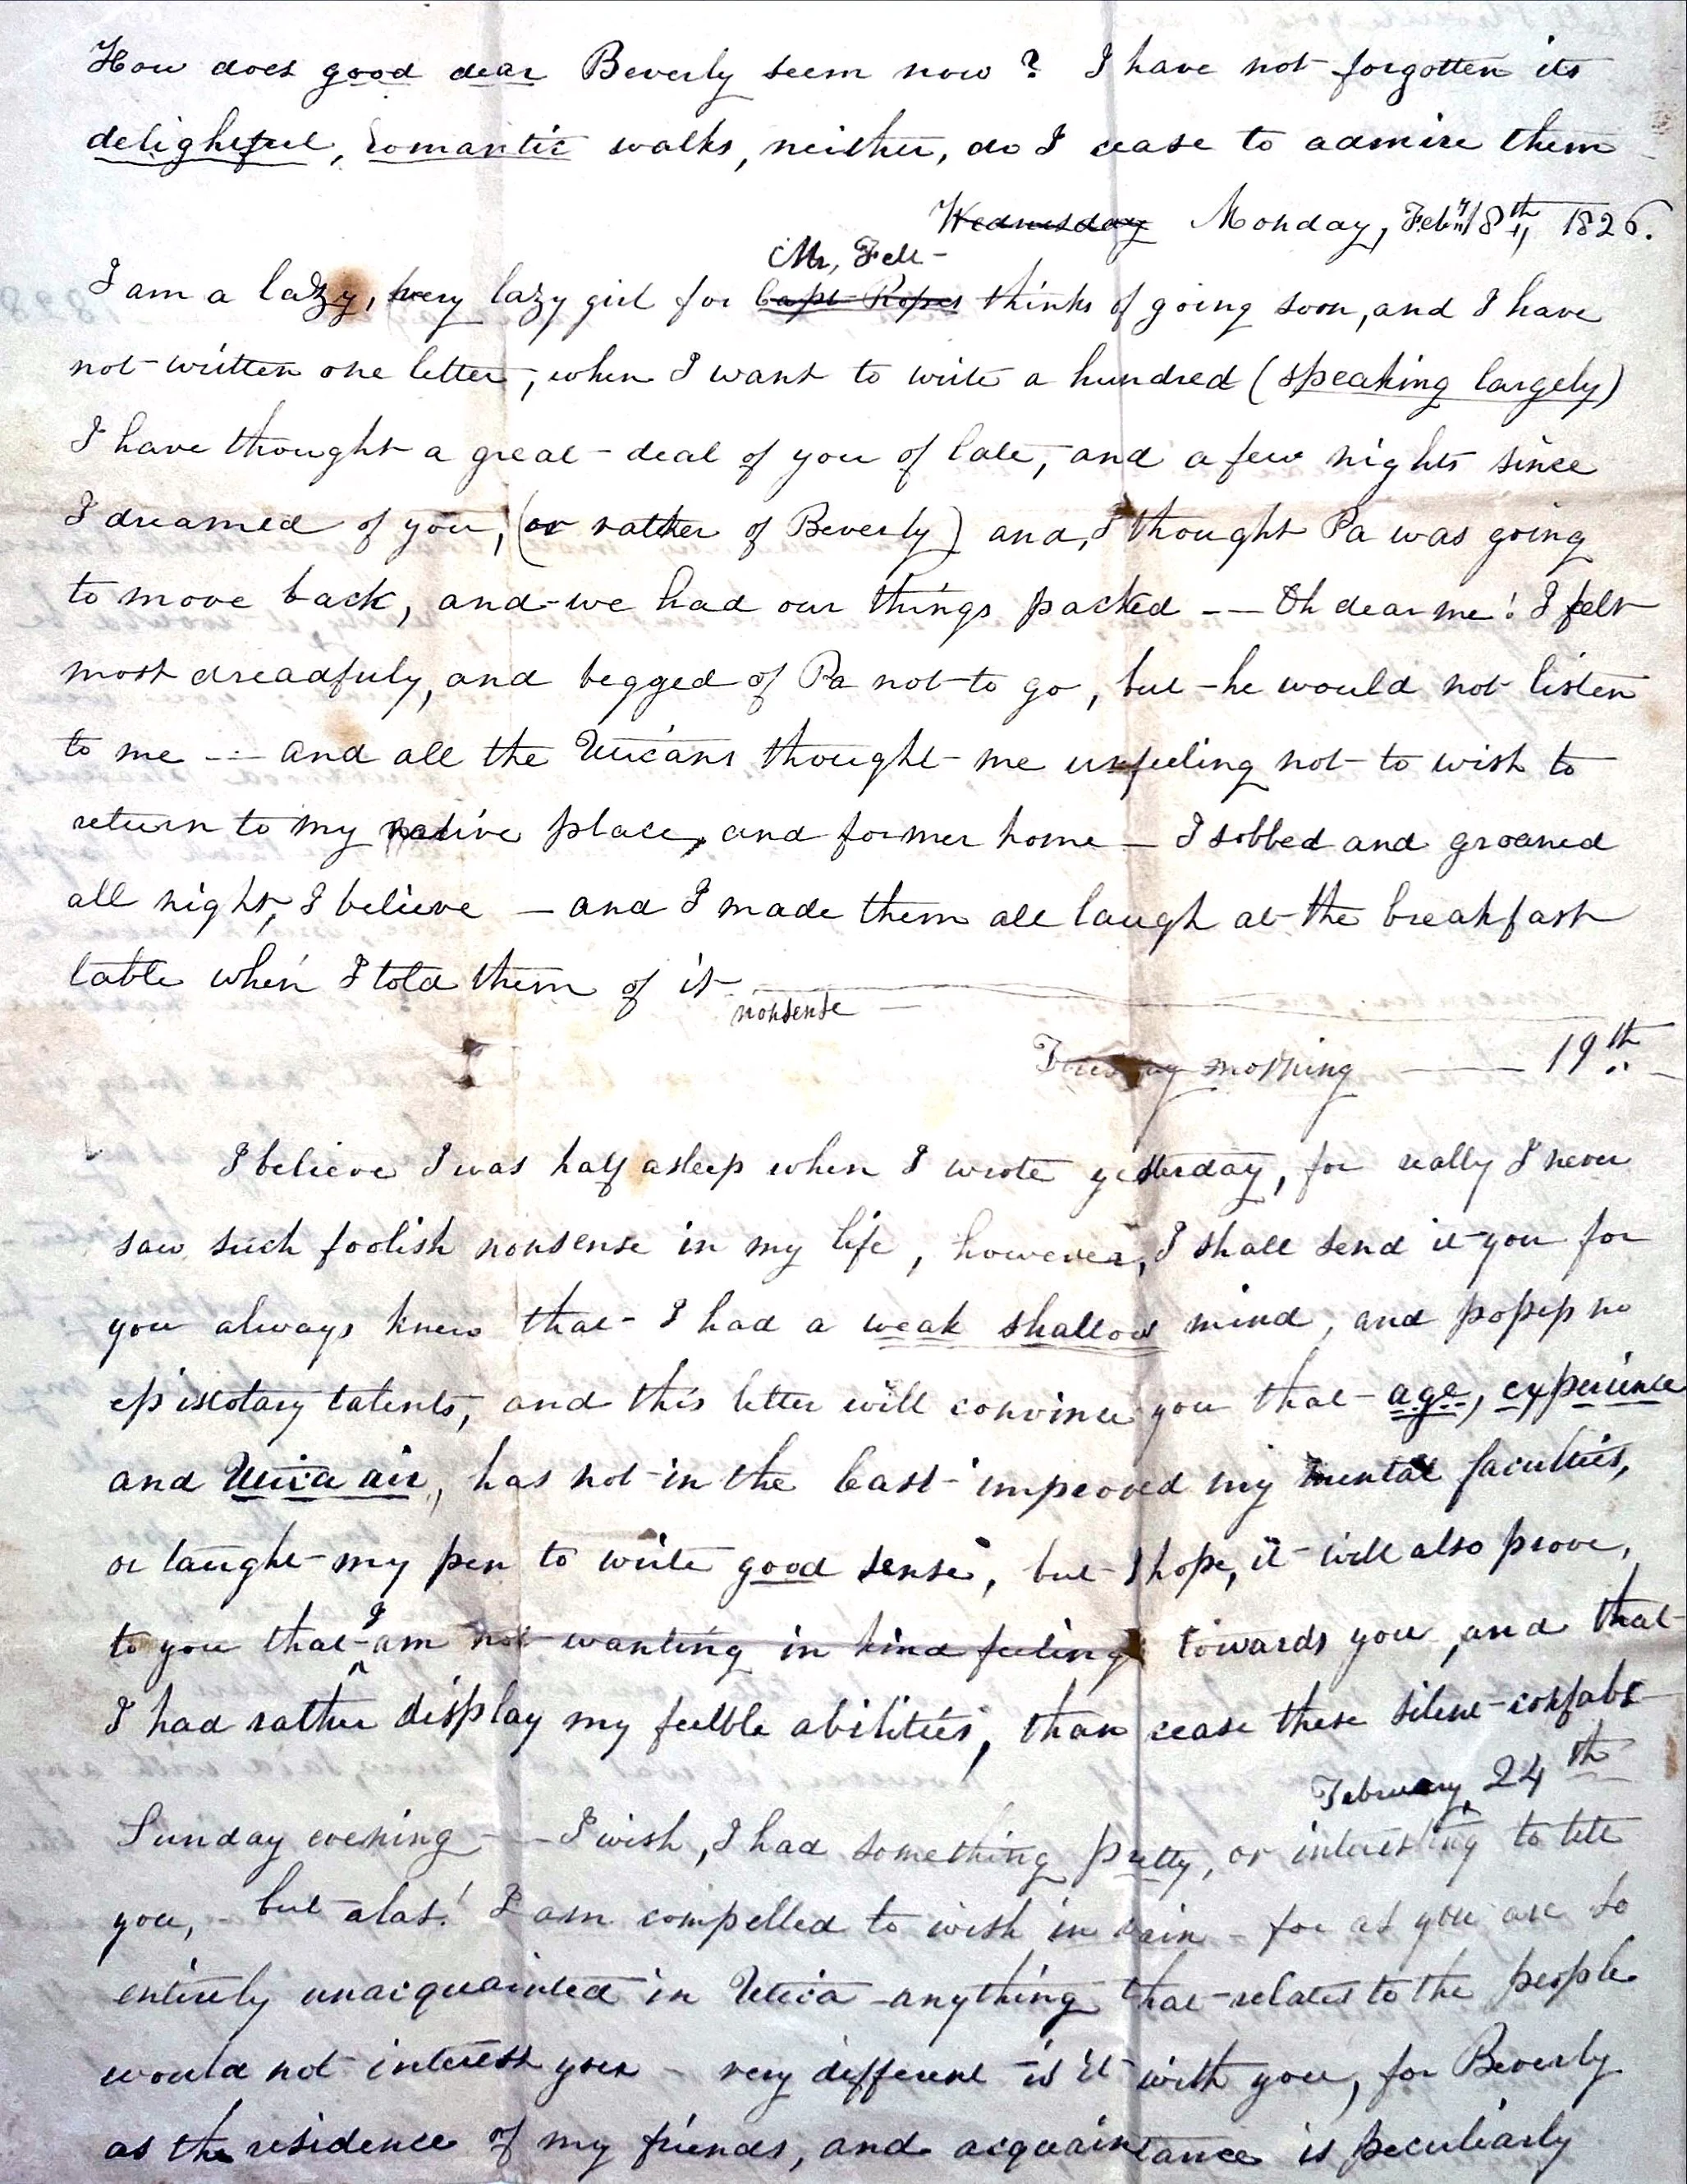 How does good dear Beverly seem now? I have not forgotten its
delightful, romantic walks, neither, do I cease to admire them
Wednesday Monday, Feb'y 18th, 1826.
Mr, Felt -
I am a lazy, very lazy girl for Capt Ropes thinks of going soon, and I have
not written one letter, when I want to write a hundred (speaking largely)
I have thought a great-deal of you of late, and a few nights since
I dreamed of you, (or rather of Beverly) and, I thought Pa was going
to move back, and we had our things packed -- Oh dear me! I felt
most dreadfuly, and begged of Pa not to go, but he would not listen
to me --- and all the Uticans thought me unfeeling not to wish to
return to my native place, and former home — I sobbed and groaned
all night, I believe — and I made them all laugh at the breakfast
table when I told them of it
nonsense —
Tuesday morning —— 19th
I believe I was half asleep when I wrote yesterday, for really I never
saw such foolish nonsense in my life, however, I shall send it you for
you always knew that I had a weak shallow mind, and posess no
epistolary talents, and this letter will convince you that age, experience
and Utica air, has not in the least improved my mental faculties,
or taught my pen to write good sense, but I hope, it will also prove,
I
to you that am not wanting in kind feeling towards you, and that
I had rather display my feeble abilities, than cease these silent confabs
February 24th
Sunday evening —— I wish, I had something pretty, or interesting to tell
you, but alas! I am compelled to wish in vain - for as you are so
entirely unacquainted in Utica anything that relates to the people
would not interest you - very different is it with you, for Beverly
as the residence of my friends, and acquaintance is peculiarly